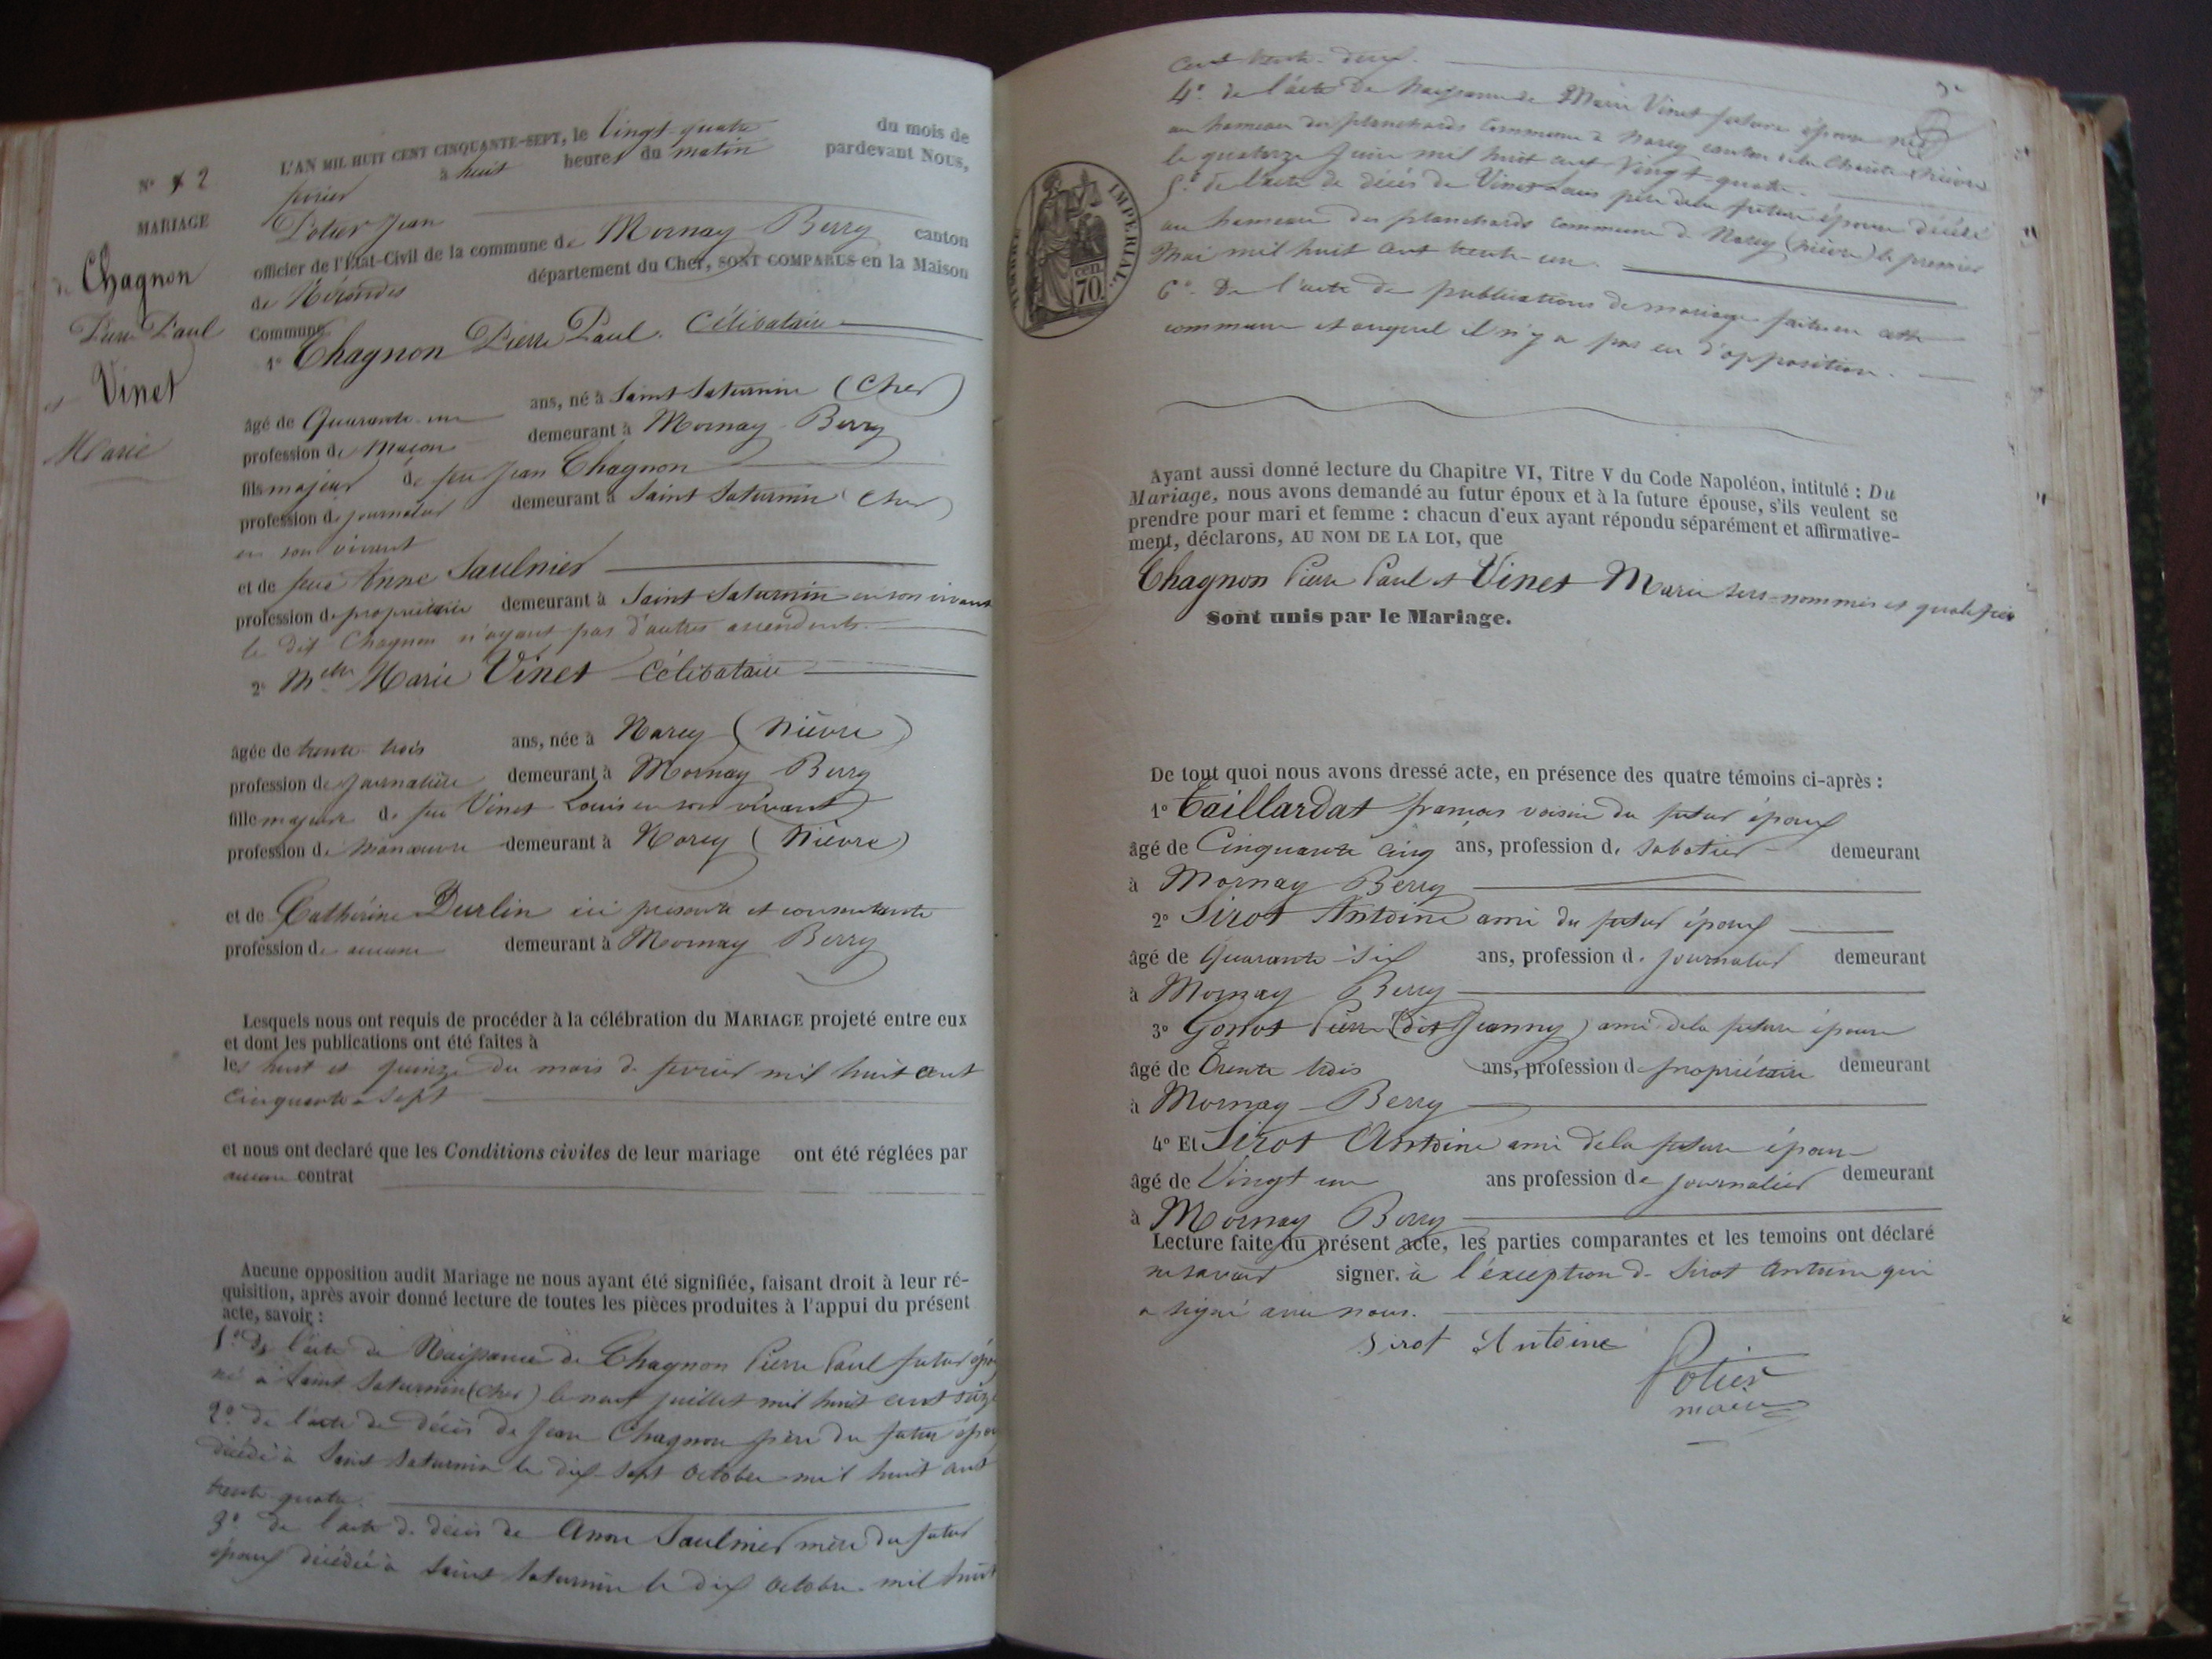 N° 2
MARIAGE
de Chagnon
Pierre Paul
et Vinet
Marie
L'AN MIL HUIT CENT CINQUANTE-SEPT, le Vingt-quatre du mois de
février à huit heures du matin pardevant NOUS,
Potier Jean
officier de l'État-Civil de la commune de Mornay Berry canton
de Nérondes département du Cher, SONT COMPARUS en la Maison
Commune
1° Chagnon Pierre Paul. Célibataire
âgé de Quarante-un ans, né à Saint Saturnin (Cher)
profession de Maçon demeurant à Mornay-Berry
fils majeur de feu Jean Chagnon
profession de journalier demeurant à Saint Saturnin (Cher)
en son vivant
et de feue Anne Saulnier
profession de propriétaire demeurant à Saint Saturnin en son vivant
le dit Chagnon n'ayant pas d'autres ascendants.
2° Melle Marie Vinet Célibataire
âgée de trente-trois ans, née à Narcy (Nièvre)
profession de journalière demeurant à Mornay-Berry
fille majeure de feu Vinet Louis en son vivant
profession de Manœuvre demeurant à Narcy (Nièvre)
et de Cathérine Durlin ici présente et consentante
profession de aucune demeurant à Mornay Berry
Lesquels nous ont requis de procéder à la célébration du MARIAGE projeté entre eux
et dont les publications ont été faites à
les huit et quinze du mois de février mil huit cent
cinquante-sept
et nous ont declaré que les Conditions civiles de leur mariage ont été réglées par
aucun contrat
Aucune opposition audit Mariage ne nous ayant été signifiée, faisant droit à leur ré-
quisition, après avoir donné lecture de toutes les pièces produites à l'appui du présent
acte, savoir :
1° De l'acte de Naissance de Chagnon Pierre Paul futur époux
né à Saint Saturnin (Cher) le neuf juillet mil huit cent seize
2° de l'acte de décès de Jean Chagnon père du futur époux
décédé à Saint Saturnin le dix-sept octobre mil huit cent
trente quatre.
3° de l'acte de décès de Anne Saulnier mère du futur
époux décédée à Saint Saturnin le dix octobre mil huit
cent trente-deux.
4° de l'acte de Naissance de Marie Vinet future épouse née
au hameau des planchards commune de Narcy canton de la Charité (Nièvre)
le quatorze Juin mil huit cent Vingt-quatre.
5° de l'acte de décès de Vinet Louis père de la future épouse décédé
au hameau des planchards commune de Narcy (Nièvre) le premier
Mai mil huit cent trente-un.
6° De l'acte de publications de mariage faites en cette
commune et auquel il n'y a pas eu d'opposition.
TIMBRE IMPERIAL.
70 cen.
Ayant aussi donné lecture du Chapitre VI, Titre V du Code Napoléon, intitulé : Du
Mariage, nous avons demandé au futur époux et à la future épouse, s'ils veulent se
prendre pour mari et femme : chacun d'eux ayant répondu séparément et affirmative-
ment, déclarons, AU NOM DE LA LOI, que
Chagnon Pierre Paul et Vinet Marie sus-nommés et qualifiés
Sont unis par le Mariage.
De tout quoi nous avons dressé acte, en présence des quatre témoins ci-après :
1° Taillardat françois voisin du futur époux
âgé de Cinquante cinq ans, profession de sabotier demeurant
à Mornay Berry
2° Sirot Antoine ami du futur époux
âgé de Quarante-six ans, profession de journalier demeurant
à Mornay Berry
3° Gonot Pierre (dit Jeanny) ami de la future épouse
âgé de Trente trois ans, profession de propriétaire demeurant
à Mornay-Berry
4° Et Sirot Antoine ami de la future épouse
âgé de Vingt un ans profession de journalier demeurant
à Mornay Berry
Lecture faite du présent acte, les parties comparantes et les temoins ont déclaré
ne savoir signer. à l'éxception de Sirot Antoine qui
a signé avec nous.
Sirot Antoine
Potier
maire